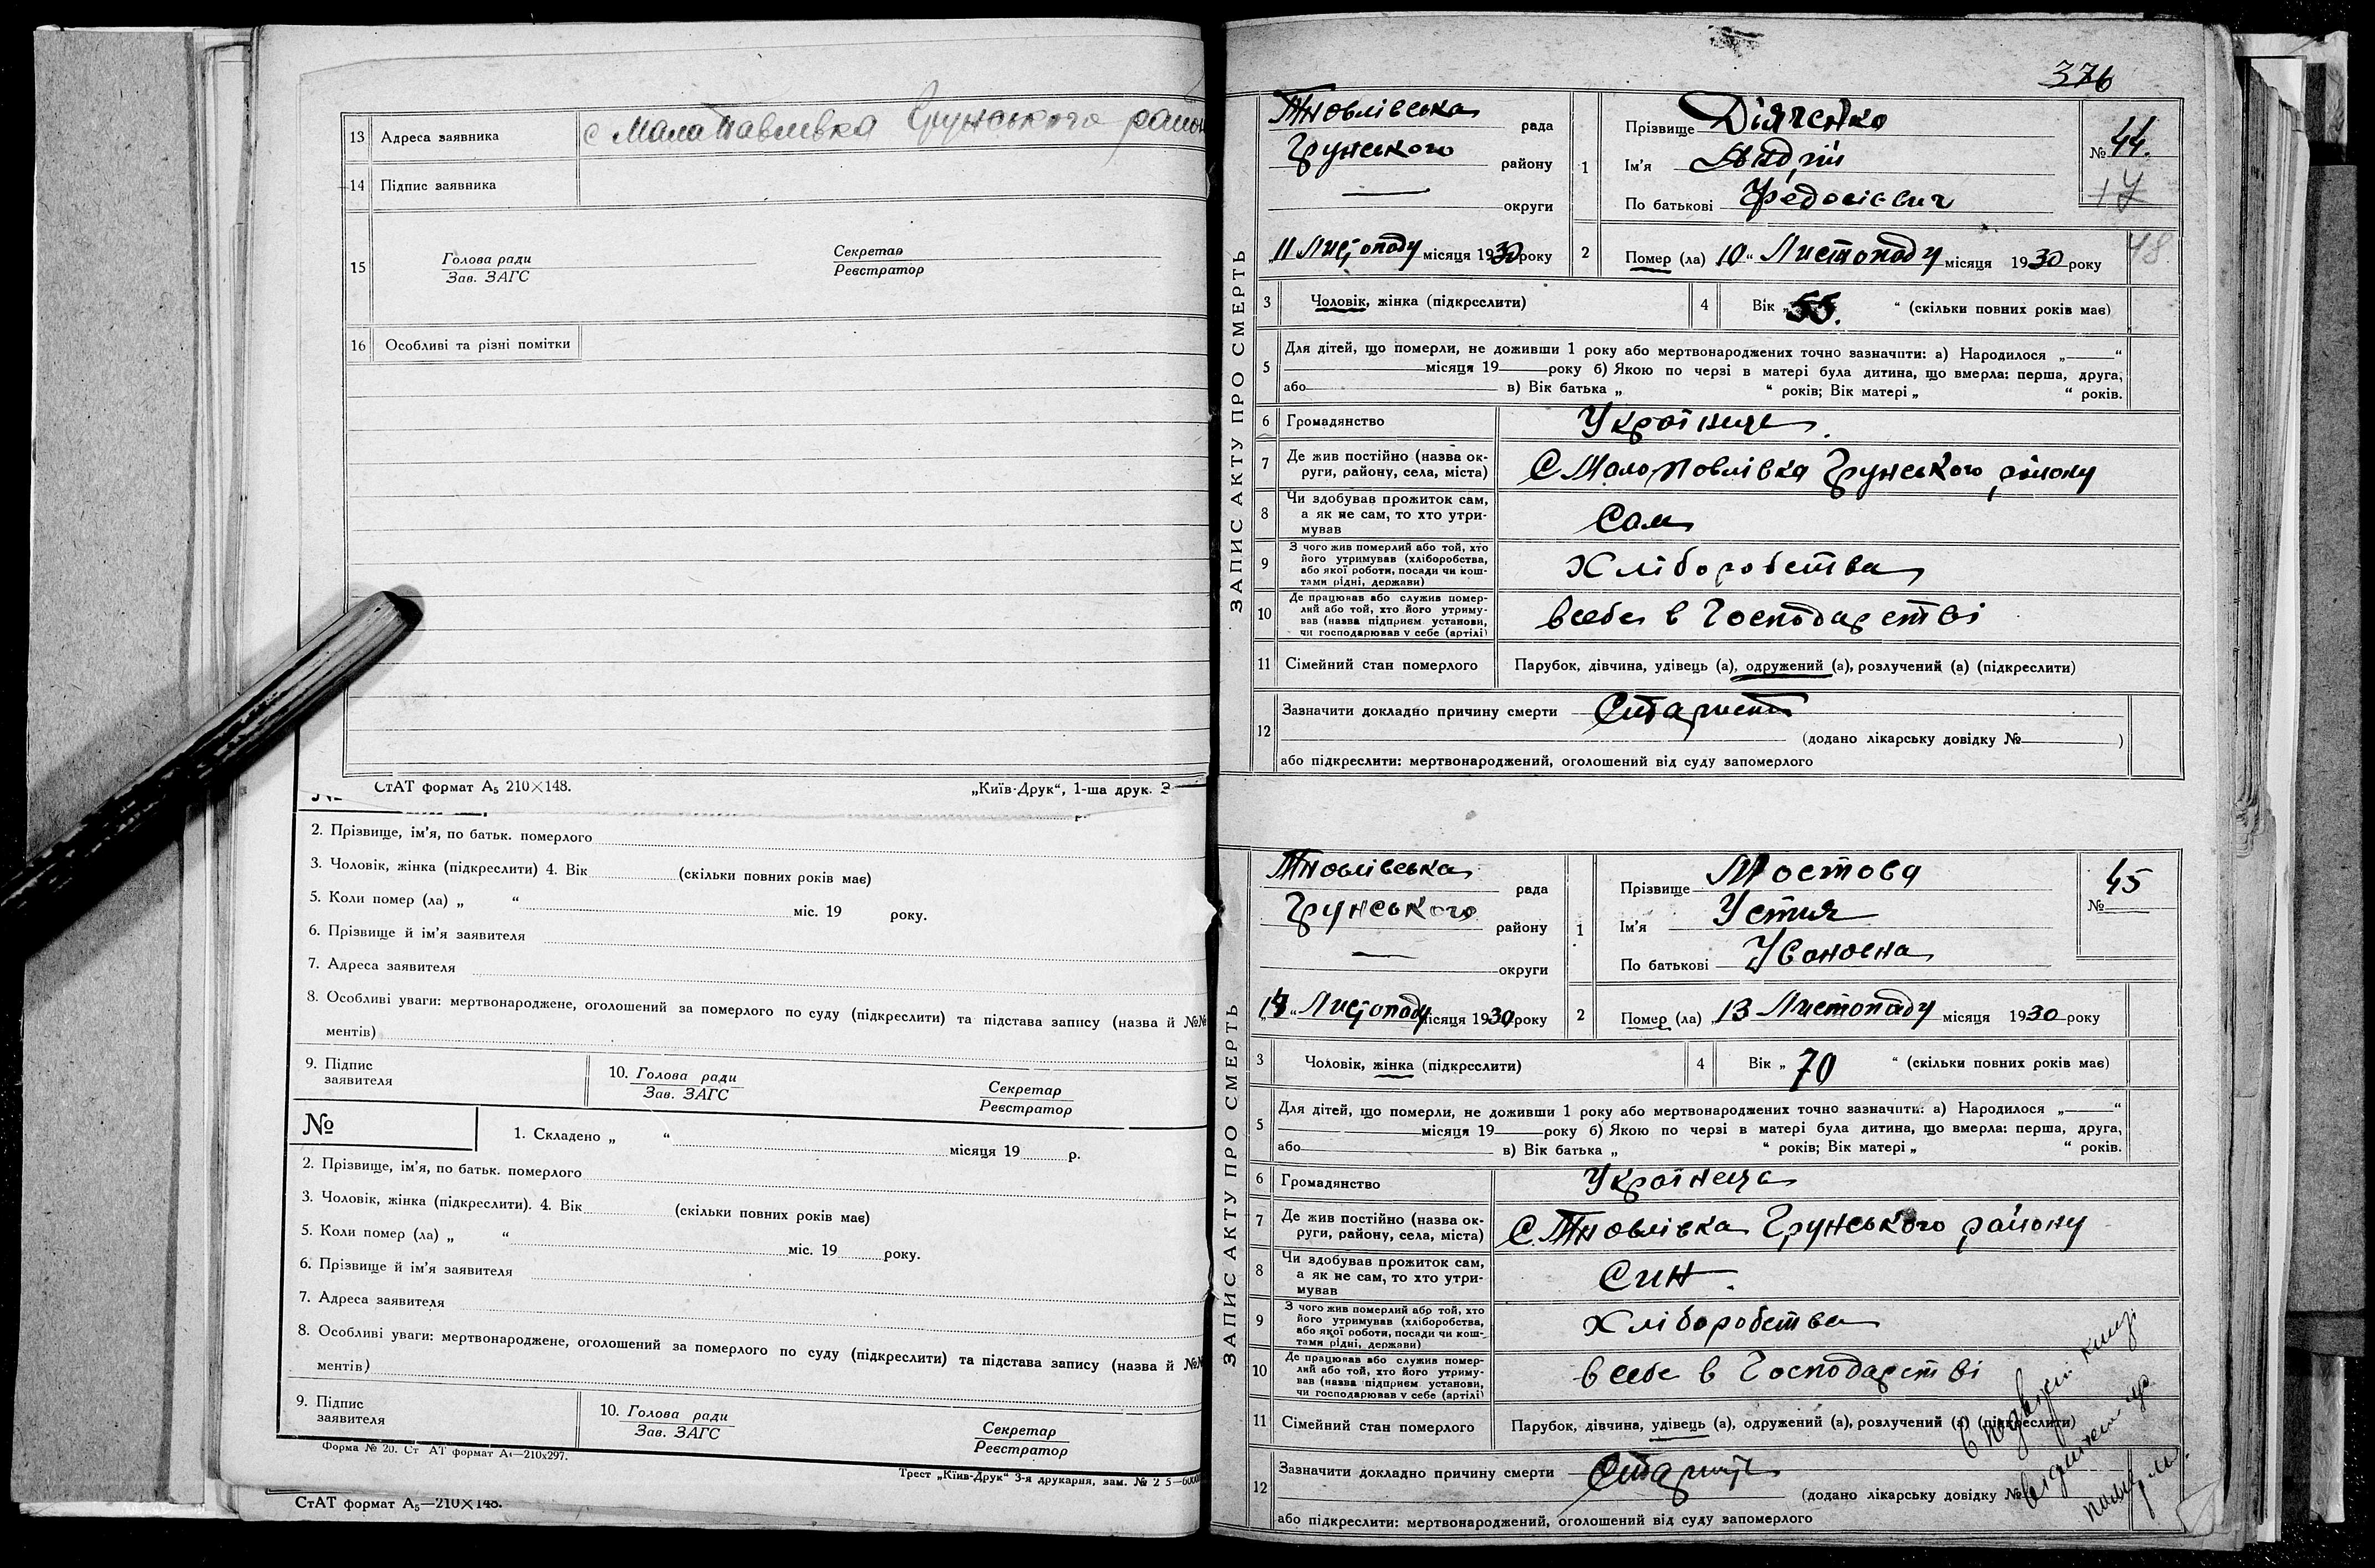 13 Адреса заявника с Мала Павлівка Грунського район
14 Підпис заявника
15 Голова ради Секретар
Зав. ЗАГС Реєстратор
16 Особливі та різні помітки
СтАТ формат А₅ 210×148. „Київ-Друк“, 1-ша друк.
2. Прізвище, ім’я, по батьк. померлого
3. Чоловік, жінка (підкреслити) 4. Вік (скільки повних років має)
5. Коли помер (ла) „ “ міс. 19 року.
6. Прізвище й ім’я заявителя
7. Адреса заявителя
8. Особливі уваги: мертвонароджене, оголошений за померлого по суду (підкреслити) та підстава запису (назва й №№
ментів)
9. Підпис
заявителя
10. Голова ради Секретар
Зав. ЗАГС Реєстратор
№ 1. Складено „ “ місяця 19 р.
2. Прізвище, ім’я, по батьк. померлого
3. Чоловік, жінка (підкреслити). 4. Вік (скільки повних років має)
5. Коли помер (ла) „ “ міс. 19 року.
6. Прізвище й ім’я заявителя
7. Адреса заявителя
8. Особливі уваги: мертвонароджене, оголошений за померлого по суду (підкреслити) та підстава запису (назва й №№
ментів)
9. Підпис
заявителя
10. Голова ради Секретар
Зав. ЗАГС Реєстратор
Форма № 20. Ст АТ формат А₄—210х297.
Трест „Київ-Друк“ 3-я друкарня, зам. №
СтАТ формат А₅—210×148.
376
ЗАПИС АКТУ ПРО СМЕРТЬ
рада
Грунського району
округи
11 Листопаду місяця 1930 року
1 Прізвище Діяченко
Ім’я Андрій
По батькові Федосієвич
№ 44.
17
48.
2 Помер (ла) 10 “ Листопаду місяця 1930 року
3 Чоловік, жінка (підкреслити)
4 Вік „ 55. “ (скільки повних років має)
5 Для дітей, що померли, не доживши 1 року або мертвонароджених точно зазначити: а) Народилося „ “
місяця 19 року б) Якою по черзі в матері була дитина, що вмерла: перша, друга,
або в) Вік батька „ “ років; Вік матері „ “ років.
6 Громадянство Українец
7 Де жив постійно (назва ок-
руги, району, села, міста) С Мало Повлівка Грунського району
8 Чи здобував прожиток сам,
а як не сам, то хто утри-
мував Сам
9 З чого жив померлий або той, хто
його утримував (хліборобства,
або якої роботи, посади чи кош-
тами рідні, держави) Хліборобства
10 Де працював або служив помер-
лий або той, хто його утриму-
вав (назва підприєм. установи,
чи господарював у себе (артілі) всебе в Господарстві
11 Сімейний стан померлого Парубок, дівчина, удівець (а), одружений (а), розлучений (а) (підкреслити)
12 Зазначити докладно причину смерти
(додано лікарську довідку № )
або підкреслити: мертвонароджений, оголошений від суду запомерлого
ЗАПИС АКТУ ПРО СМЕРТЬ
рада
Грунського району
округи
Листопаду місяця 1930 року
1 Прізвище Мостова
Ім’я Устия
По батькові Ивановна
45
№
2 Помер (ла) „13 Листопаду місяця 1930 року
3 Чоловік, жінка (підкреслити)
4 Вік „ 70 “ (скільки повних років має)
5 Для дітей, що померли, не доживши 1 року або мертвонароджених точно зазначити: а) Народилося „ “
місяця 19 року б) Якою по черзі в матері була дитина, що вмерла: перша, друга,
або в) Вік батька „ “ років; Вік матері „ “ років.
6 Громадянство Українеца
7 Де жив постійно (назва ок-
руги, району, села, міста) Грунського району
8 Чи здобував прожиток сам,
а як не сам, то хто утри-
мував Син
9 З чого жив померлий або той, хто
його утримував (хліборобства,
або якої роботи, посади чи кош-
тами рідні, держави) Хліборобства
10 Де працював або служив помер-
лий або той, хто його утриму-
вав (назва підприєм. установи,
чи господарював у себе (артілі) всебе в Господарстві
11 Сімейний стан померлого Парубок, дівчина, удівець (а), одружений (а), розлучений (а) (підкреслити)
12 Зазначити докладно причину смерти
(додано лікарську довідку №
або підкреслити: мертвонароджений, оголошений від суду запомерлого